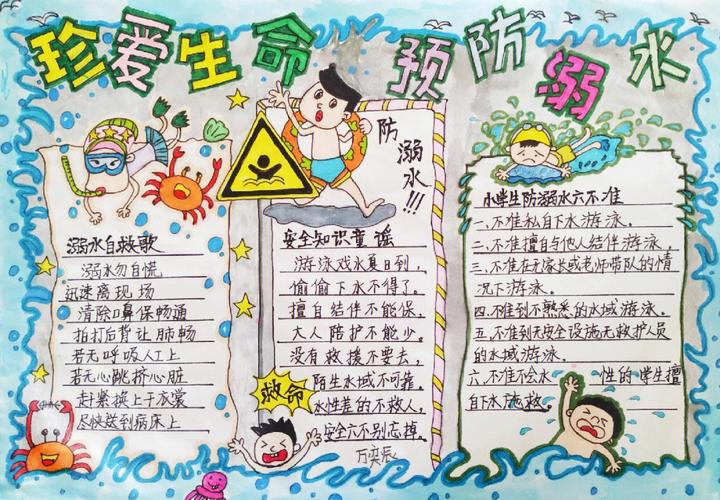 珍爱生命 预防溺水
溺水自救歌
溺水勿自慌
迅速离现场
清除口鼻保畅通
拍打后背让肺畅
若无呼吸人工上
若无心跳挤心脏
赶紧换上干衣裳
尽快送到病床上
防溺水!!!
安全知识童谣
游泳戏水夏日到,
偷偷下水不得了。
擅自结伴不能保,
大人陪护不能少。
没有救援不要去,
陌生水域不可靠。
水性差的不救人,
安全六不别忘掉。
救命
万奕辰
小学生防溺水六不准
一、不准私自下水游泳。
二、不准擅自与他人结伴游泳。
三、不准在无家长或老师带队的情
况下游泳。
四、不准到不熟悉的水域游泳。
五、不准到无安全设施无救护人员
的水域游泳。
六、不准不会水性的学生擅
自下水施救。